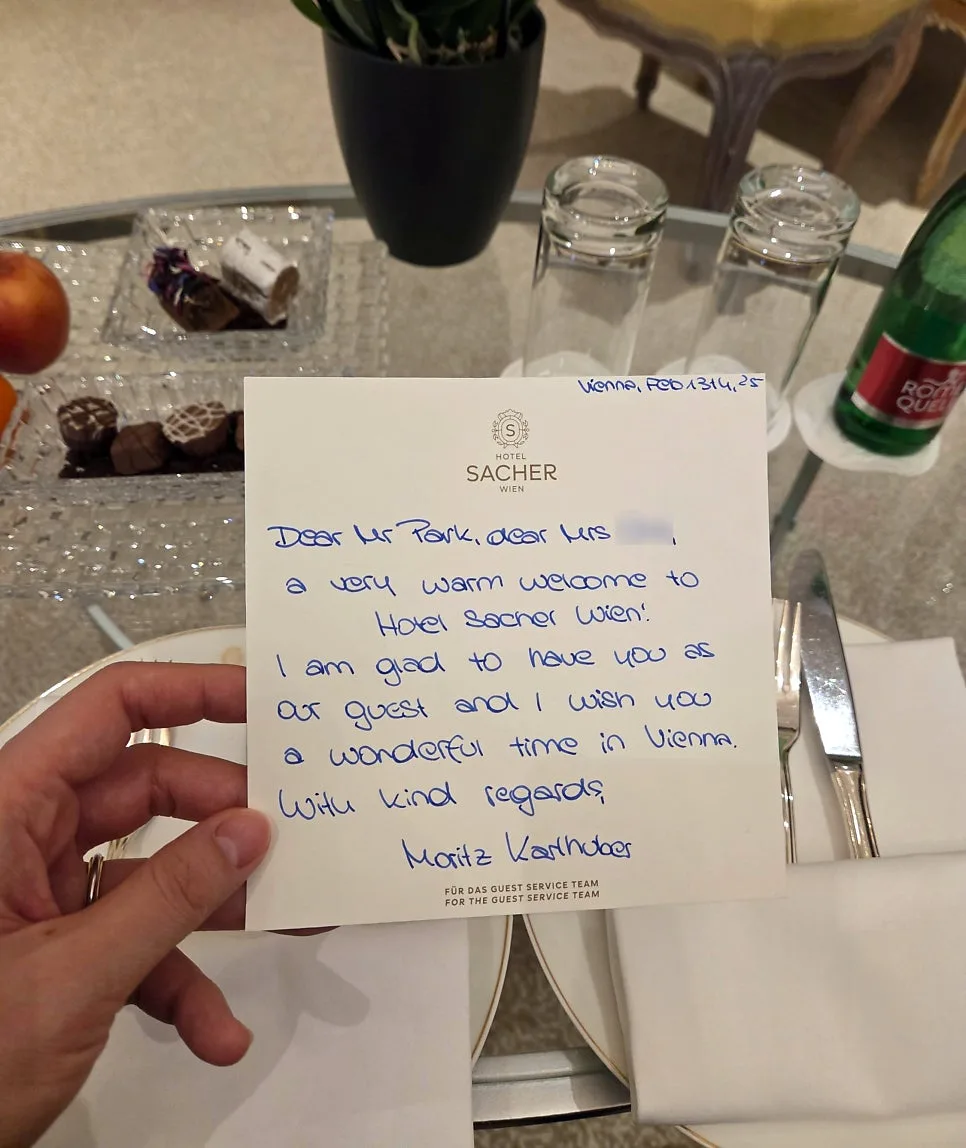 Vienna, Feb 13th, 25
S
HOTEL
SACHER
WIEN
Dear Mr Park, dear Mrs ,
a very warm welcome to
Hotel Sacher Wien!
I am glad to have you as
our guest and I wish you
a wonderful time in Vienna.
With kind regards,
Moritz Karlhuber
FÜR DAS GUEST SERVICE TEAM
FOR THE GUEST SERVICE TEAM